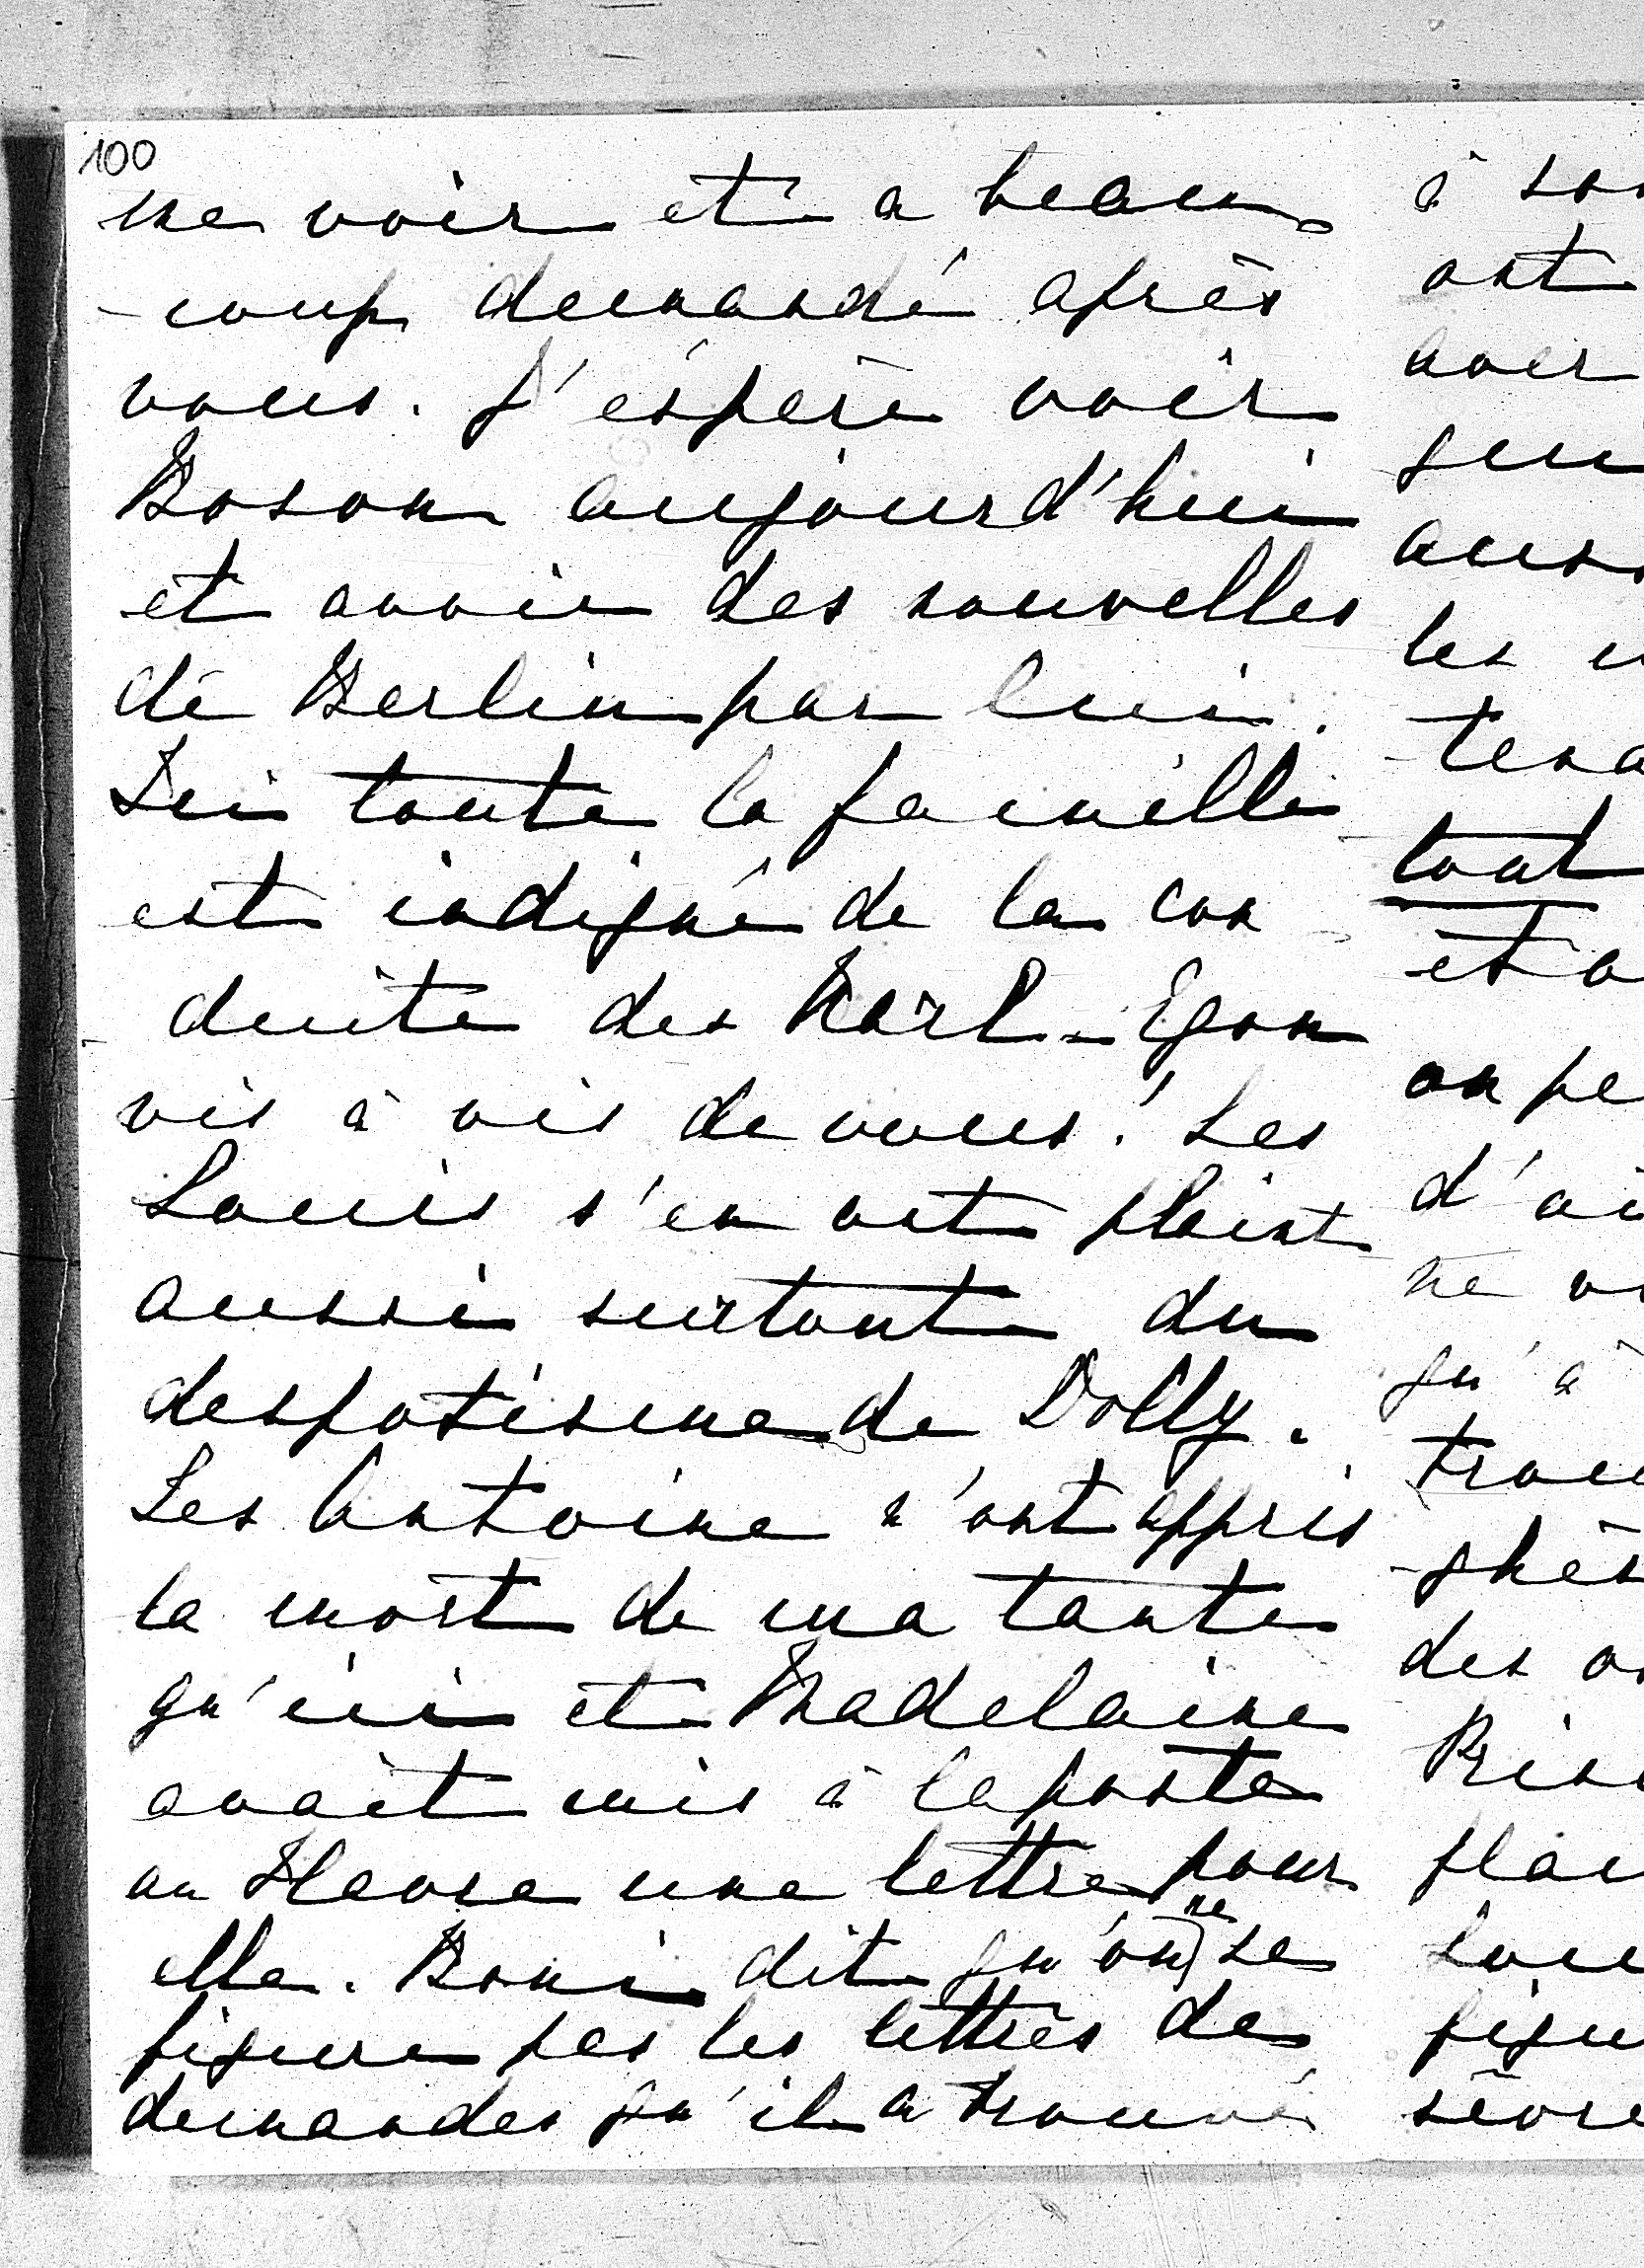 100
me voir et a beau
-coup demandé après
vous. J'éspère voir
Boson aujourd'hui
et avoir des nouvelles
de Berlin par lui.
Ici toute la famille
est indigné de la con
duite des Karl-Egon
vis à vis de vous! Les
Louis s'en ont plaint
aussi surtout du
despotisme de Dolly.
Les Antoine n'ont appris
la mort de ma tante
qu'ici et Madelaine
avait mis à la poste
au Havre une lettre pour
elle. Boni dit qu'on ne se
figure pas les lettres de
demandes qu'il a trouvé
à son
ont
avoir
qui
auss
les
tena
tout
et a
on pe
d'ai
ne vo
qu'à
trou
phès
des
Pris
plai
figu
sèvre